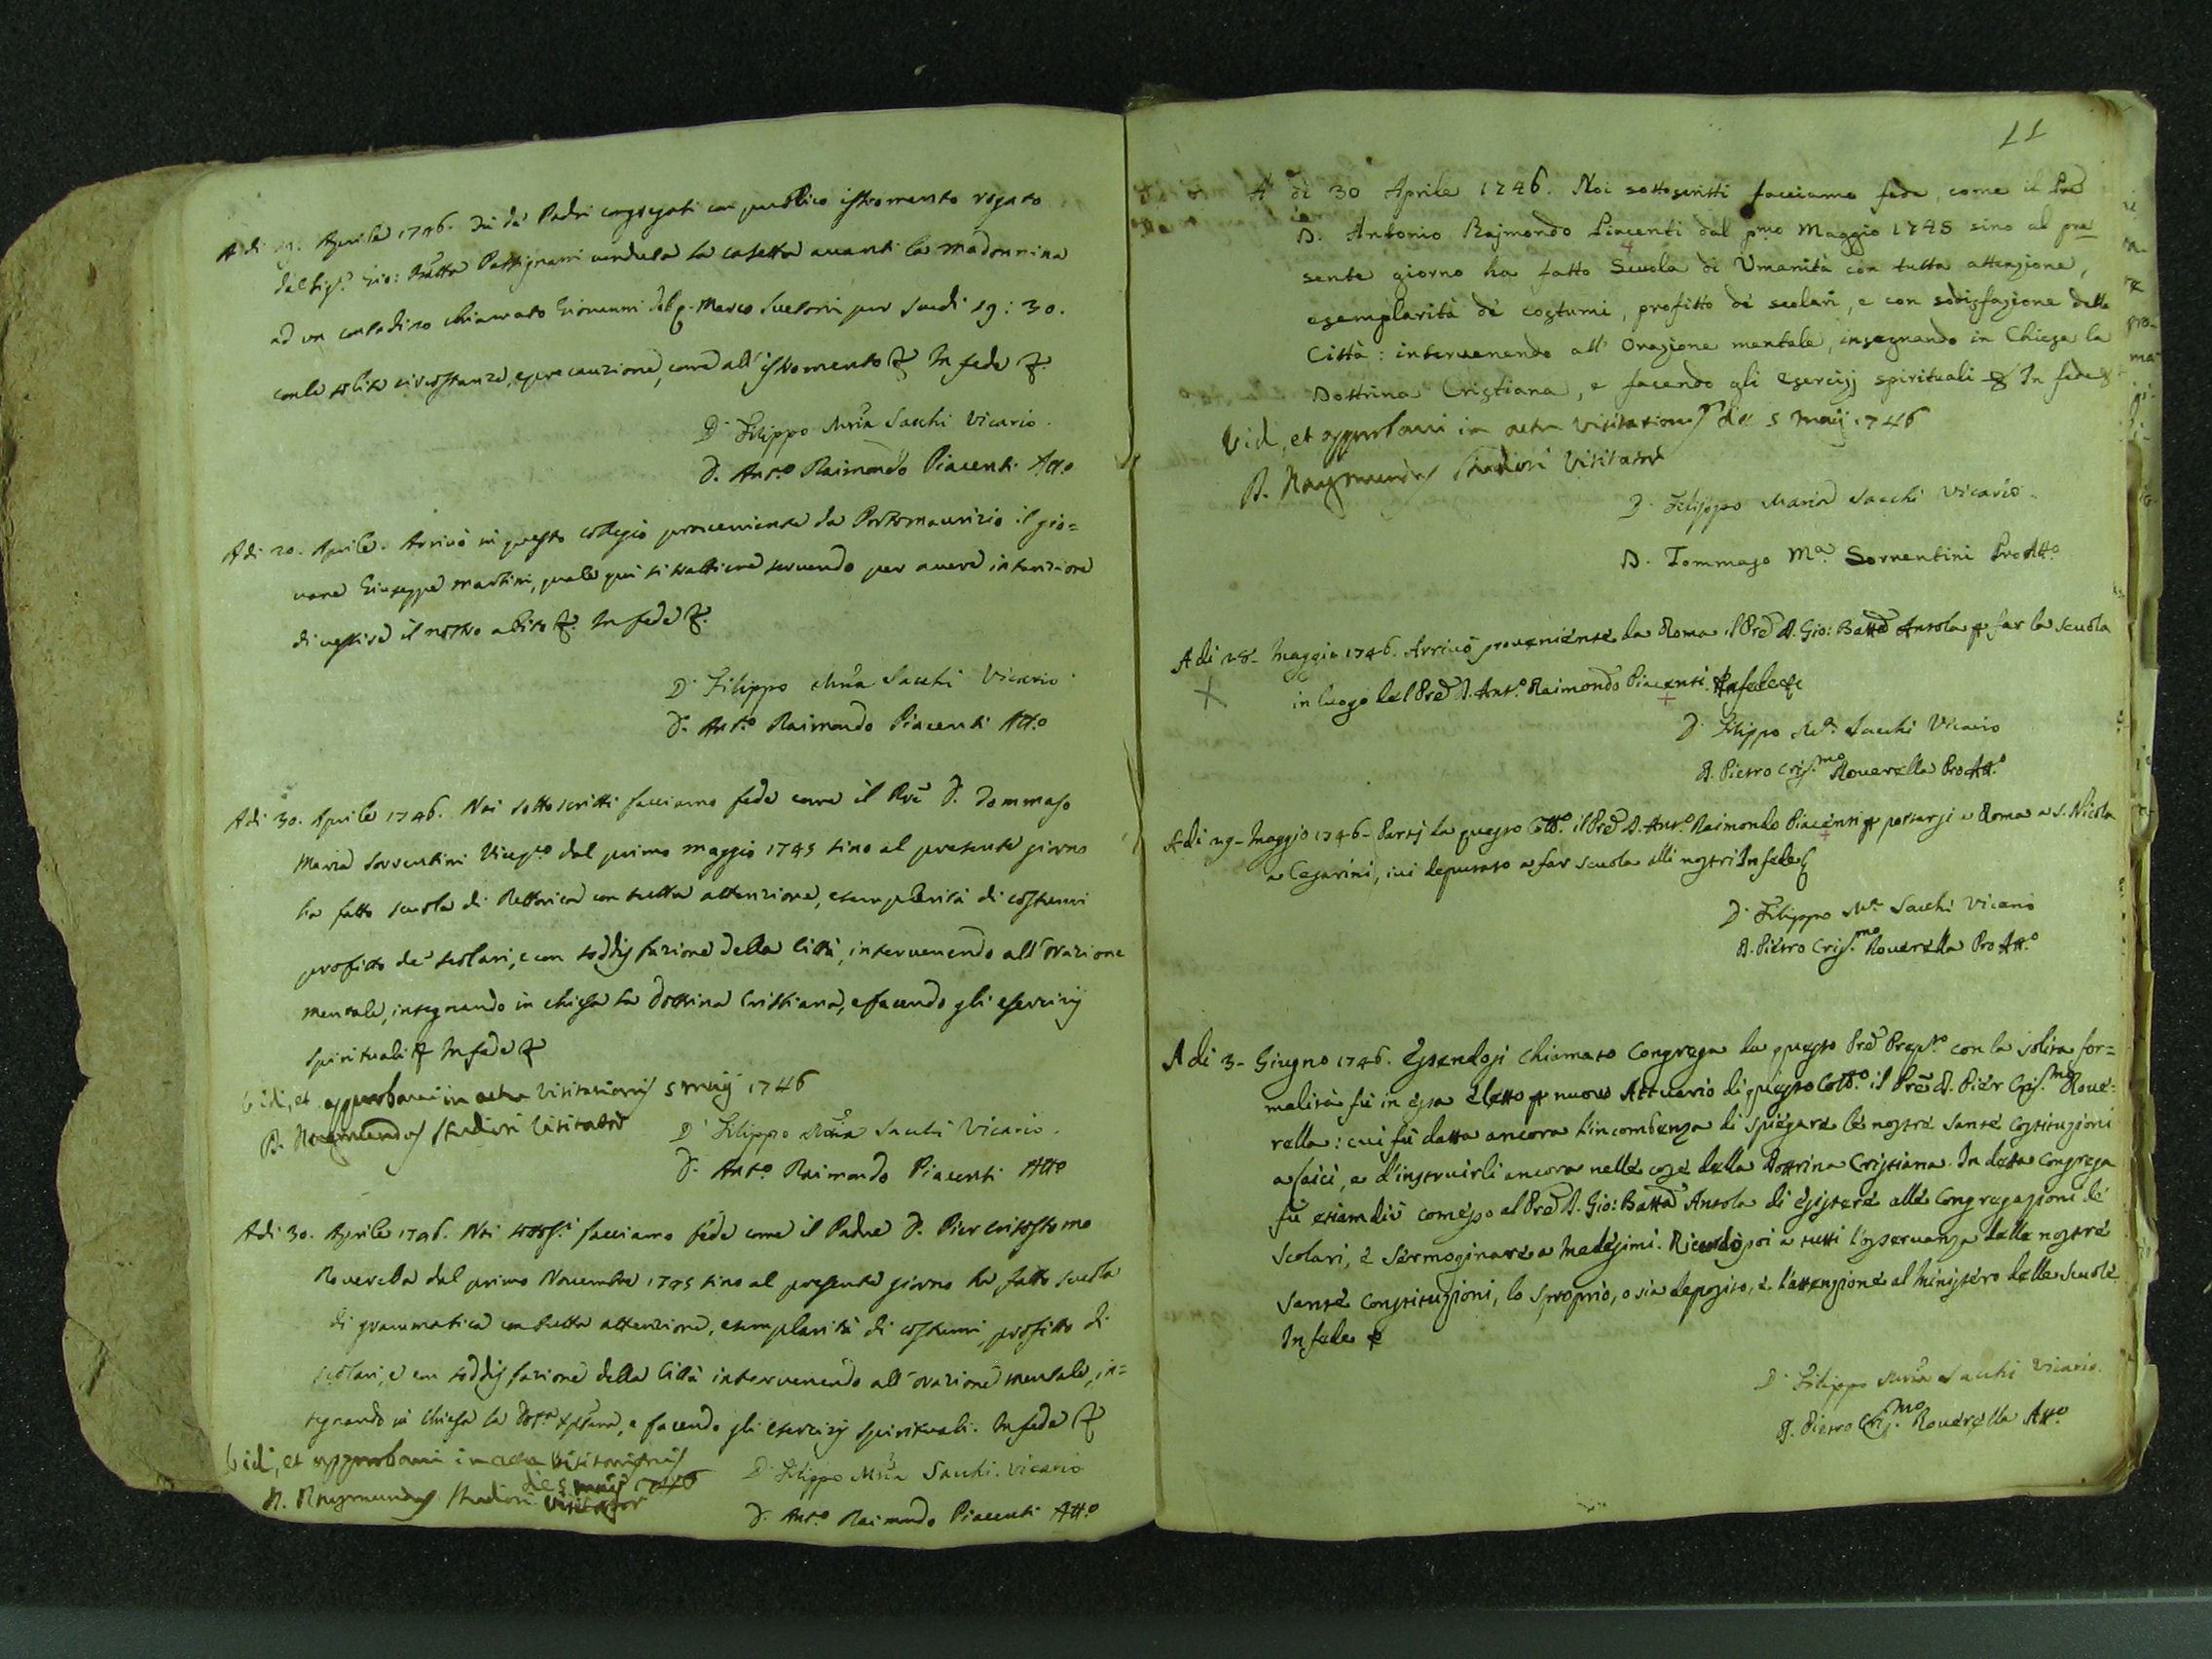 A di 19. Aprile 1746. Fù da Padri congregati con pubblico istromento rogato
dal Sig.r Gio: Batta Passignani venduta la casetta avanti la madonnina
ad un contadino chiamato Giovanni del q. Marco Suetoni per scudi 19: 30.
con le solite circostanze, e precauzione, come all' istromento &. In fede &.
D. Filippo Mria Sacchi Vicario.
D. Ant.o Raimondo Piacenti Att.o
A di 20. Aprile. Arrivò in questo collegio proveniente da Portomaurizio il gio=
vane Giuseppe Martini, quale qui si trattiene servendo per avere intenzione
di vestire il nostro abito &. In fede &.
D. Filippo Mria Sacchi Vicario
D. Ant.o Raimondo Piacenti Att.o
A di 30. Aprile 1746. Noi sotto scritti facciamo fede come il Pre D. Tommaso
Maria Sorrentini Vicep.to dal primo maggio 1745 sino al presente giorno
ha fatto scuola di Rettorica con tutta attenzione, esemplarità di costumi
profitto de' scolari, e con soddisfazione della Città, intervenendo all' orazione
mentale, insegnando in chiesa la Dottrina Cristiana, e facendo gli esercizij
spirituali & In fede &
Vidi, et approbavi in actu visitationis 5 maij 1746
D. Raymundus Studiosi Visitator
D. Filippo Mria Sacchi Vicario.
D. Ant.o Raimondo Piacenti Att.o
A di 30. Aprile 1746. Noi sottos.i facciamo fede come il Padre D. Pier Crisostomo
Roverella dal primo Novembre 1745 sino al presente giorno ha fatto scuola
di grammatica con tutta attenzione, esemplarità di costumi, profitto di
scolari, e con soddisfazione della Città intervenendo all' orazione mentale, in=
segnando in Chiesa la Dott.a Xpiana, e facendo gli esercizij spirituali. In fede &
Vidi, et approbavi in actu visitationis
die 5 maij 1746
D. Raymundus Visitator
D. Filippo Mria Sacchi. Vicario
D. Ant.o Raimondo Piacenti Att.o
11
A' dì 30 Aprile 1746. Noi sottoscritti facciamo fede, come il Pre
D. Antonio Rajmondo Piacenti dal pmo Maggio 1745 sino al pre=
sente giorno ha fatto Scuola di Umanità con tutta attenzione,
esemplarità de' costumi, profitto de' scolari, e con sodisfazione della
Città: intervenendo all' Orazione mentale, insegnando in Chiesa la
Dottrina Cristiana, e facendo gli esercizj spirituali & In fede &
Vidi, et approbavi in actu visitationis die 5 maij 1746
D. Raymundus Visitator
D. Filippo Maria Sacchi Vicario.
D. Tommaso M.a Sorrentini ProAtt.o
A di 28- Maggio 1746. Arrivò proveniente da Roma il Pre D. Gio: Batta Ansola p far la scuola
in luogo del Pre D. Ant.o Raimondo Piacenti. In fede &
D. Filippo M.a Sacchi Vicario
D. Pietro Cris.mo Roverella ProAtt.o
A di 29- Maggio 1746- Partj da questo Coll.o il Pre D. Ant.o Raimondo Piacenti p portarsi a Roma a S. Nicola
a Cesarini, ivi deputato a far scuola alli nostri In fede &
D. Filippo M.a Sacchi Vicario
D. Pietro Cris.mo Roverella Pro Att.o
A di 3- Giugno 1746. Essendosi chiamato Congrega da questo Pre Prep.to con la solita for=
malità fù in essa eletto p nuovo Attuario di questo Coll.o il Pre D. Pier Cris.mo Rove=
rella: cui fù datta ancora l'incombenza di spiegare le nostre sante Costituzioni
a laici, e d'instruirli ancora nelle cose della Dottrina Cristiana. In detta Congrega
fù etiamdiò comesso al Pre D. Gio: Batta Ansola di esistere alle Congregazioni de'
Scolari, e sermoginare a Medesimi. Ricordò poi a tutti l'osservanza delle nostre
Sante Constituzioni, lo sproprio, o sia deposito, e l'attenzione al Ministero delle Scuole.
In fede &
D. Filippo Mria Sacchi Vicario.
D. Pietro Cris.mo Roverella Att.o